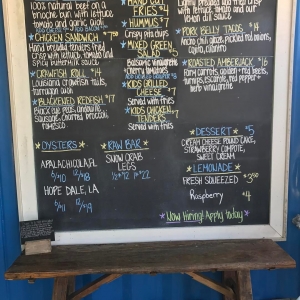 100% natural beef on a
brioche bun with lettuce
tomato and garlic aioli
CHICKEN SANDWICH $7.50
Hand breaded tenders fried
crisp with lettuce, tomato and
spicy Mayonnaise
CRAWFISH ROLL $14
Louisiana crawfish tails,
tarragon aioli
BLACKENED REDFISH $17
Black eye peas, andouille
sausage and charred broccoli,
OYSTERS
APALACHICOLA, FL
6/$10 12/$18
HOPE DALE, LA
6/$11 12/$19
HAND CUT
FRIES $4
HUMMUS $7
Crispy pita chips
MIXED GREEN
SALAD $5
Balsamic vinaigrette
Cherry tomatoes
KIDS GRILLED
CHEESE $7
Served with fries
KIDS CHICKEN
TENDERS
Served with fries
RAW BAR
SNOW CRAB
LEGS
Lightly breaded and fried crisp
with lettuce, tomato and
lemon dill sauce
PORK BELLY TACOS $14
Ancho chili glaze, pickled red onions,
cojita, cilantro
ROASTED AMBERJACK $16
Parry carrots, golden + red beets,
turnips, escarole, red pepper +
herb vinaigrette
DESSERT $5
CREAM CHEESE POUND CAKE,
STRAWBERRY COMPOTE,
SWEET CREAM
LEMONADE
FRESH SQUEEZED $3.50
Raspberry $4
Now Hiring! Apply Today